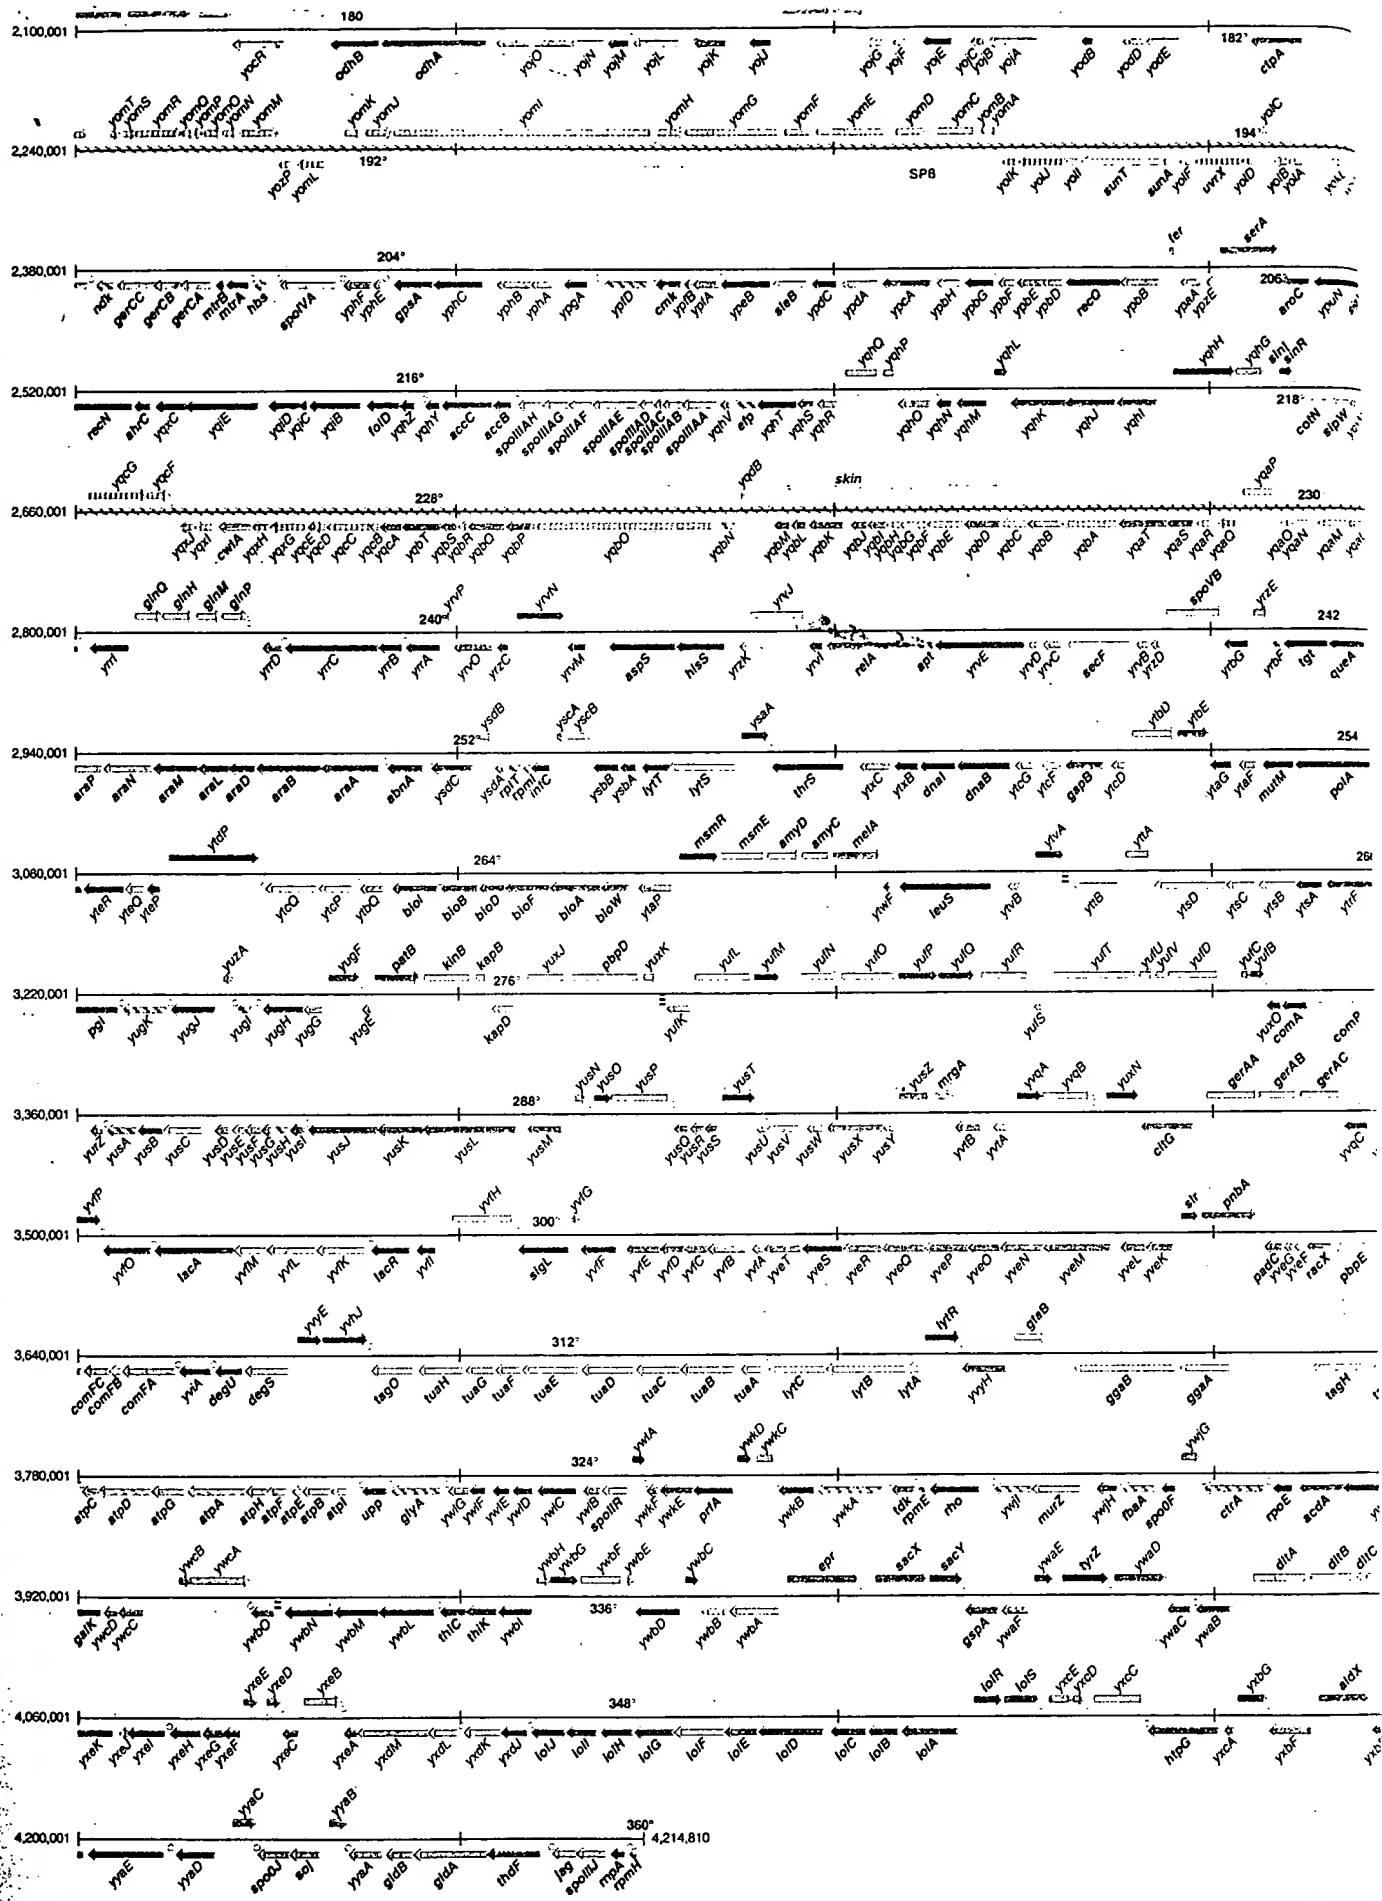 180
2,100,001
yocR odhB odhA yojO yojN yojM yojL yojK yojJ yojG yojF yojE yojC yojB yojA yodB yodD yodE 182° ctpA
yomT yomS yomR yomQ yomP yomO yomN yomM yomK yomJ yomI yomH yomG yomF yomE yomD yomC yomB yomA yolC
2,240,001 192° 194°
yozP yomL SPß yolK yolJ yolI sunT sunA yolF uvrX yolD yolB yolA
fer serA
2,380,001 204° 206°
ndk gerCC gerCB gerCA mtrB mtrA hbs spoIVA yphF yphE gpsA yphC yphB yphA ypgA ypfD cmk ypfB ypfA ypeB sleB ypdC ypdA ypcA ypbH ypbG ypbF ypbE ypbD recQ ypbB ypaA ypzE aroC ypuN
yqhQ yqhP yqhL yqhH yqhG sinI sinR
2,520,001 216° 218°
recN ahrC yqxC yqiE yqiD yqiC yqiB folD yqhZ yqhY accC accB spoIIIAH spoIIIAG spoIIIAF spoIIIAE spoIIIAD spoIIIAC spoIIIAB spoIIIAA yqhV efp yqhT yqhS yqhR yqhO yqhN yqhM yqhK yqhJ yqhI cotN sipW
yqcG yqcF yqdB skin yqaP
2,660,001 228° 230
yqxJ yqxI cwlA yqxH yqxG yqcE yqcD yqcC yqcB yqcA yqbT yqbS yqbR yqbQ yqbP yqbO yqbN yqbM yqbL yqbK yqbJ yqbI yqbH yqbG yqbF yqbE yqbD yqbC yqbB yqbA yqaT yqaS yqaR yqaQ yqaO yqaN yqaM yqaL
glnQ glnH glnM glnP yrvP yrvN yrvJ spoVB yrzE
2,800,001 240° 242
yrrI yrrD yrrC yrrB yrrA yrvO yrzC yrvM aspS hisS yrzK yrvI relA apt yrvE yrvD yrvC secF yrvB yrzD yrbG yrbF tgt queA
ysdB yscA yscB ysaA ytbD ytbE
2,940,001 252° 254
araP araN araM araL araD araB araA abnA ysdC ysdA rplT rpmI infC ysbB ysbA lytT lytS thrS ytxC ytxB dnaI dnaB ytcG ytcF gapB ytcD ytaG ytaF mutM polA
ytdP msmR msmE amyD amyC melA ytvA yttA
3,080,001 264°
yteR yteQ yteP ytcQ ytcP ytbQ bioI bioB bioD bioF bioA bioW ytaP ytwF leuS ytvB yttB ytsD ytsC ytsB ytsA ytrF
yuzA yugF patB kinB kapB yuxJ pbpD yuxK yufL yufM yufN yufO yufP yufQ yufR yufT yufU yufV yufD yufC yufB
3,220,001 276°
pgi yugK yugJ yugI yugH yugG yugE kapD yufK yufS yuxO comA comP
yusN yusO yusP yusT yusZ mrgA yvqA yvqB yuxN gerAA gerAB gerAC
3,360,001 288°
yurZ yusA yusB yusC yusD yusE yusF yusG yusH yusI yusJ yusK yusL yusM yusQ yusR yusS yusU yusV yusW yusX yusY yvtB yvtA citG yvqC
yvfP yvfH yvfG slr pnbA
3,500,001 300°
yvfO lacA yvfM yvfL yvfK lacR yvfI sigL yvfF yvfE yvfD yvfC yvfB yvfA yveT yveS yveR yveQ yveP yveO yveN yveM yveL yveK padC yveG yveF racX pbpE
yvyE yvhJ lytR gtaB
3,640,001 312°
comFC comFB comFA yviA degU degS tagO tuaH tuaG tuaF tuaE tuaD tuaC tuaB tuaA lytC lytB lytA yvyH ggaB ggaA tagH
ywlA ywkD ywkC ywjG
3,780,001 324°
atpC atpD atpG atpA atpH atpF atpE atpB atpI upp glyA ywlG ywlF ywlE ywlD ywlC ywlB spoIIR ywkF ywkE prfA ywkB ywkA tdk rpmE rho ywjI murZ ywjH fbaA spo0F ctrA rpoE acdA
ywcB ywcA ywbH ywbG ywbF ywbE ywbC epr sacX sacY ywaE tyrZ ywaD dltA dltB dltC
3,920,001 336°
galK ywcD ywcC ywbO ywbN ywbM ywbL thiC thiK ywbI ywbD ywbB ywbA gspA ywaF ywaC ywaB
yxeE yxeD yxeB iolR iolS yxcE yxcD yxcC yxbG aldX
4,060,001 348°
yxeK yxeJ yxeI yxeH yxeG yxeF yxeC yxeA yxdM yxdL yxdK yxdJ iolJ iolI iolH iolG iolF iolE iolD iolC iolB iolA htpG yxcA yxbF
yyaC yyaB
4,200,001 360° 4,214,810
yyaE yyaD spo0J soj yyaA gidB gidA thdF jag spoIIIJ rnpA rpmH